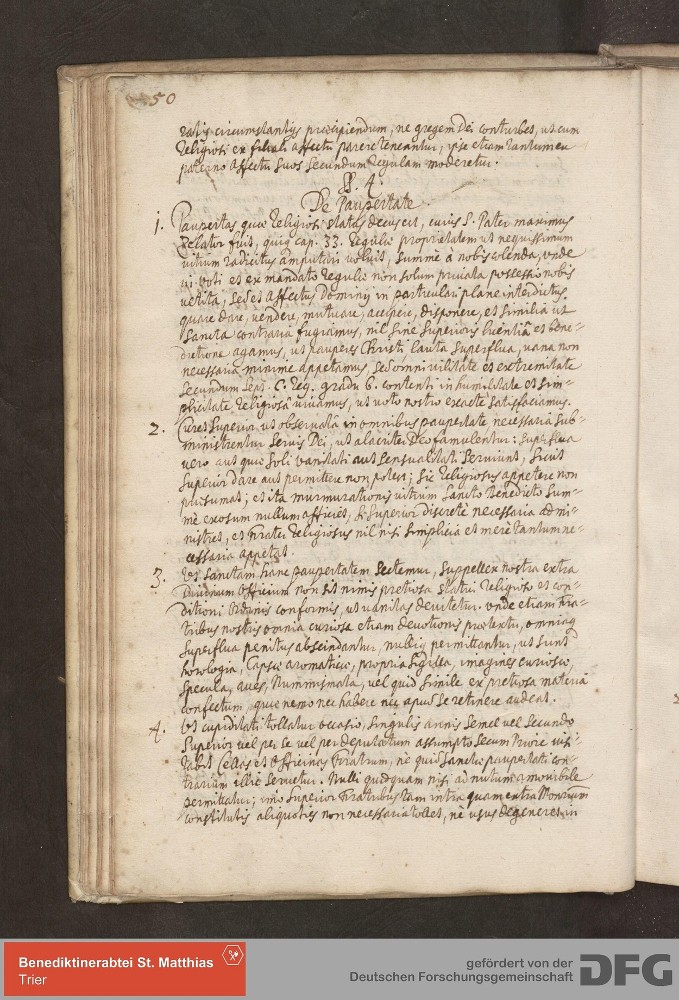 50
ratis circumstantijs praecipiendum, ne gregem Dei conturbet, ut cum
religiosi ex filiali affectu parere teneantur, ipse etiam tantum eu
paterno affectu suos secundum regulam moderetur.
§. 4.
De Paupertate.
1. Paupertas quae religiosi status decus est, cuius S. Pater maximus
zelator fuit, quiq cap. 33. regulae proprietatem ut nequissimum
vitium radicitus amputari voluit, summè à nobis colenda, unde
vi voti et ex mandato regulae non solum privata possessio nobis
vetita, sed et affectus Dominij in particulari plane interdictus.
quare dare, vendere, mutuare, accipere, disponere, et similia ut
sancta contraria fugiamus, nil sine Superioris licentiâ et bene=
dictione agamus, ut pauperes Christi lauta superflua, vana non
necessaria minime appetamus, sed omni vilitate et extremitate
secundum Sept. C. Reg. gradu 6. contenti in humilitate et sim=
plicitate religiosâ vivamus, ut voto nostro exacte satisfaciamus.
2. Curet Superior ut observata in omnibus paupertate necessaria sub=
ministrentur servis Dei, ut alacriter Deo famulentur: superflua
vero aut quae soli vanitati aut sensualitati serviunt, sicut
Superior dare aut permittere non potest; sic religiosus appetere non
praesumat; et ita murmurationis vitium sancto Benedicto sum=
mè exosum nullum afficiet, si Superior discretè necessaria admi=
nistret, et Frater religiosus nil nisi simplicia et merè tantum ne=
cessaria appetat.
3. Ut sanctam hanc paupertatem sectemur, suppellex nostra extra
Divinum Officium non sit nimis pretiosa statui religioso et con=
ditioni Ordinis conformis, ut vanitas devitetur. unde etiam Fra=
tribus nostris omnia curiosa etiam devotionis praetextu, omniaq
superflua penitus abscindantur, nullis permittantur, ut sunt
horologia, Capsae aromaticae, propria sigilla, imagines curiosae,
specula, aves, Nummismata, vel quid simile ex pretiosa materia
confectum, quae nemo nec habere nec apud se retinere audeat.
4. Ut cupiditati tollatur occasio, singulis annis semel vel secundo
Superior vel per se vel per deputatum assumpto secum Priore visi=
tabit Cellas et Officinas Fratrum, ne quid sanctae paupertati con=
trarium illic servetur. Nulli quidquam nisi ad nutum amovibile
permittatur; imo Superior Fratribus tam intra quam extra Monrium
constitutis aliquoties non necessaria tollet, ne usus degeneret in
Benediktinerabtei St. Matthias
Trier
gefördert von der
Deutschen Forschungsgemeinschaft
DFG